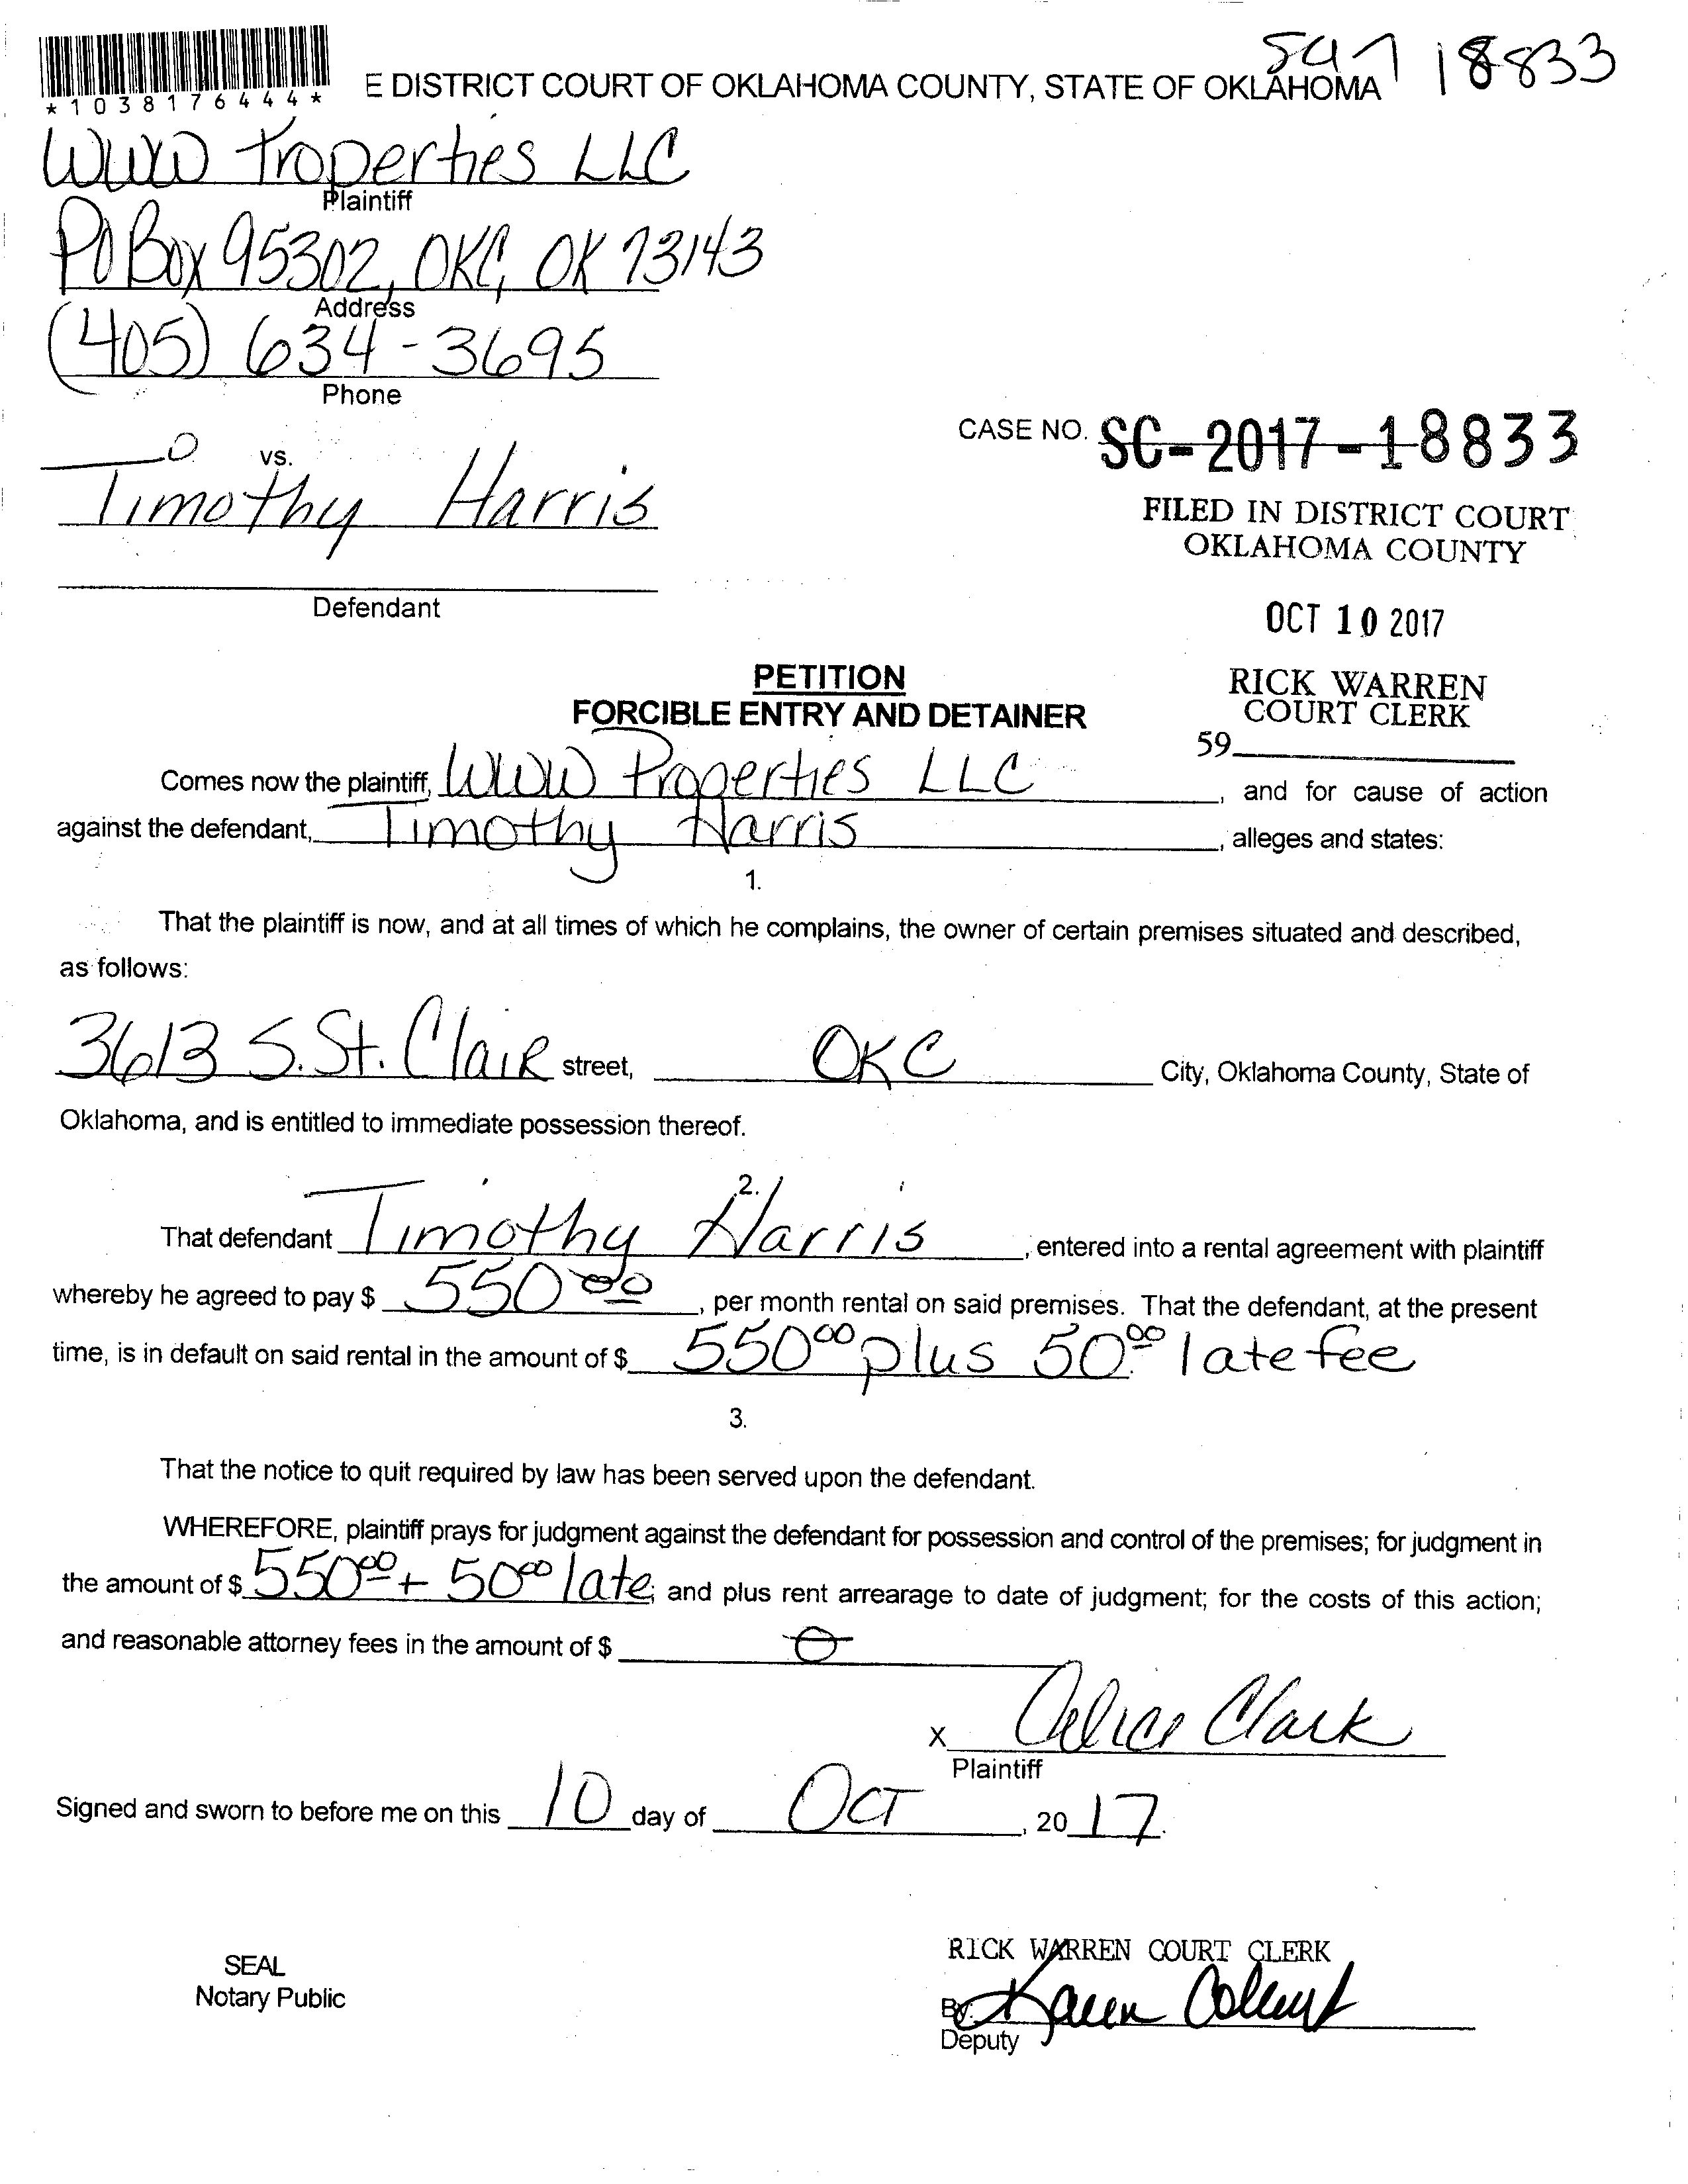 18833
*1038176444*
E DISTRICT COURT OF OKLAHOMA COUNTY, STATE OF OKLAHOMA
WWW Properties LLC
Plaintiff
PO Box 95302, OKC, OK 73143
Address
(405) 634-3695
Phone
vs.
CASE NO. SC-2017-18833
Timothy Harris
FILED IN DISTRICT COURT
OKLAHOMA COUNTY
Defendant
OCT 10 2017
PETITION
FORCIBLE ENTRY AND DETAINER
RICK WARREN
COURT CLERK
59
Comes now the plaintiff, WWW Properties LLC, and for cause of action
against the defendant, Timothy Harris, alleges and states:
1.
That the plaintiff is now, and at all times of which he complains, the owner of certain premises situated and described,
as follows:
3613 S. St. Clair street, OKC City, Oklahoma County, State of
Oklahoma, and is entitled to immediate possession thereof.
2.
That defendant Timothy Harris, entered into a rental agreement with plaintiff
whereby he agreed to pay $ 550 00, per month rental on said premises. That the defendant, at the present
time, is in default on said rental in the amount of $ 550 00 plus 50 00 late fee
3.
That the notice to quit required by law has been served upon the defendant.
WHEREFORE, plaintiff prays for judgment against the defendant for possession and control of the premises; for judgment in
the amount of $ 550 00 + 50 00 late; and plus rent arrearage to date of judgment; for the costs of this action;
and reasonable attorney fees in the amount of $ 0
X Clark
Plaintiff
Signed and sworn to before me on this 10 day of Oct, 2017.
RICK WARREN COURT CLERK
SEAL
Notary Public
By: Karen
Deputy